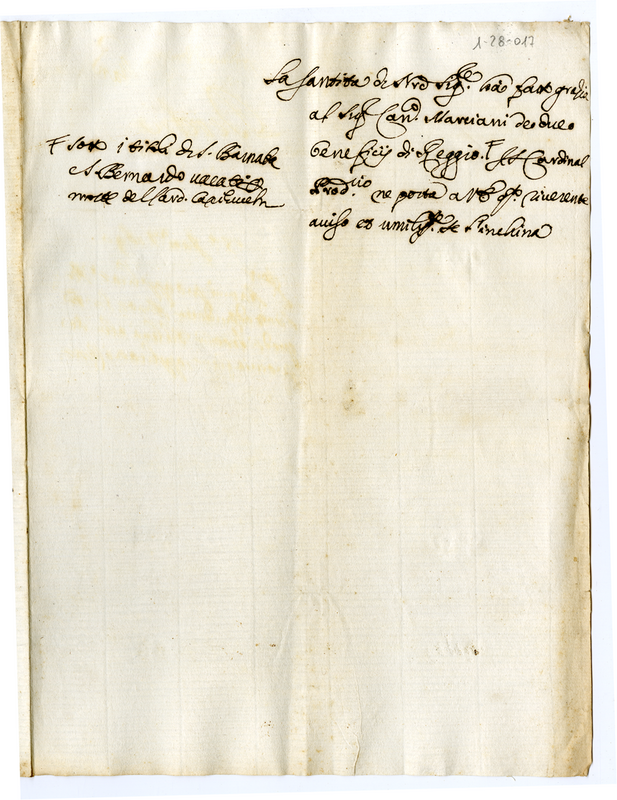 1-28-017
La Santità di Nro Sigre. hà fatto grazia
al Sigr Can.co Marciani de due
beneficij di Reggio. Ͳ Il Cardinal
Prod.rio ne porta a riverente
aviso et umilis. te s'inchina
Ͳ sotto i titoli di S. Barnaba
e S. Bernardo vacati
morte del Card.